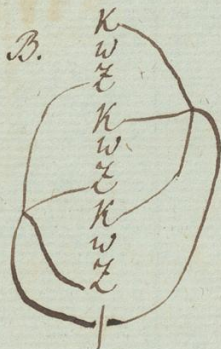 B.
K
w
Z
K
w
Z
K
w
Z